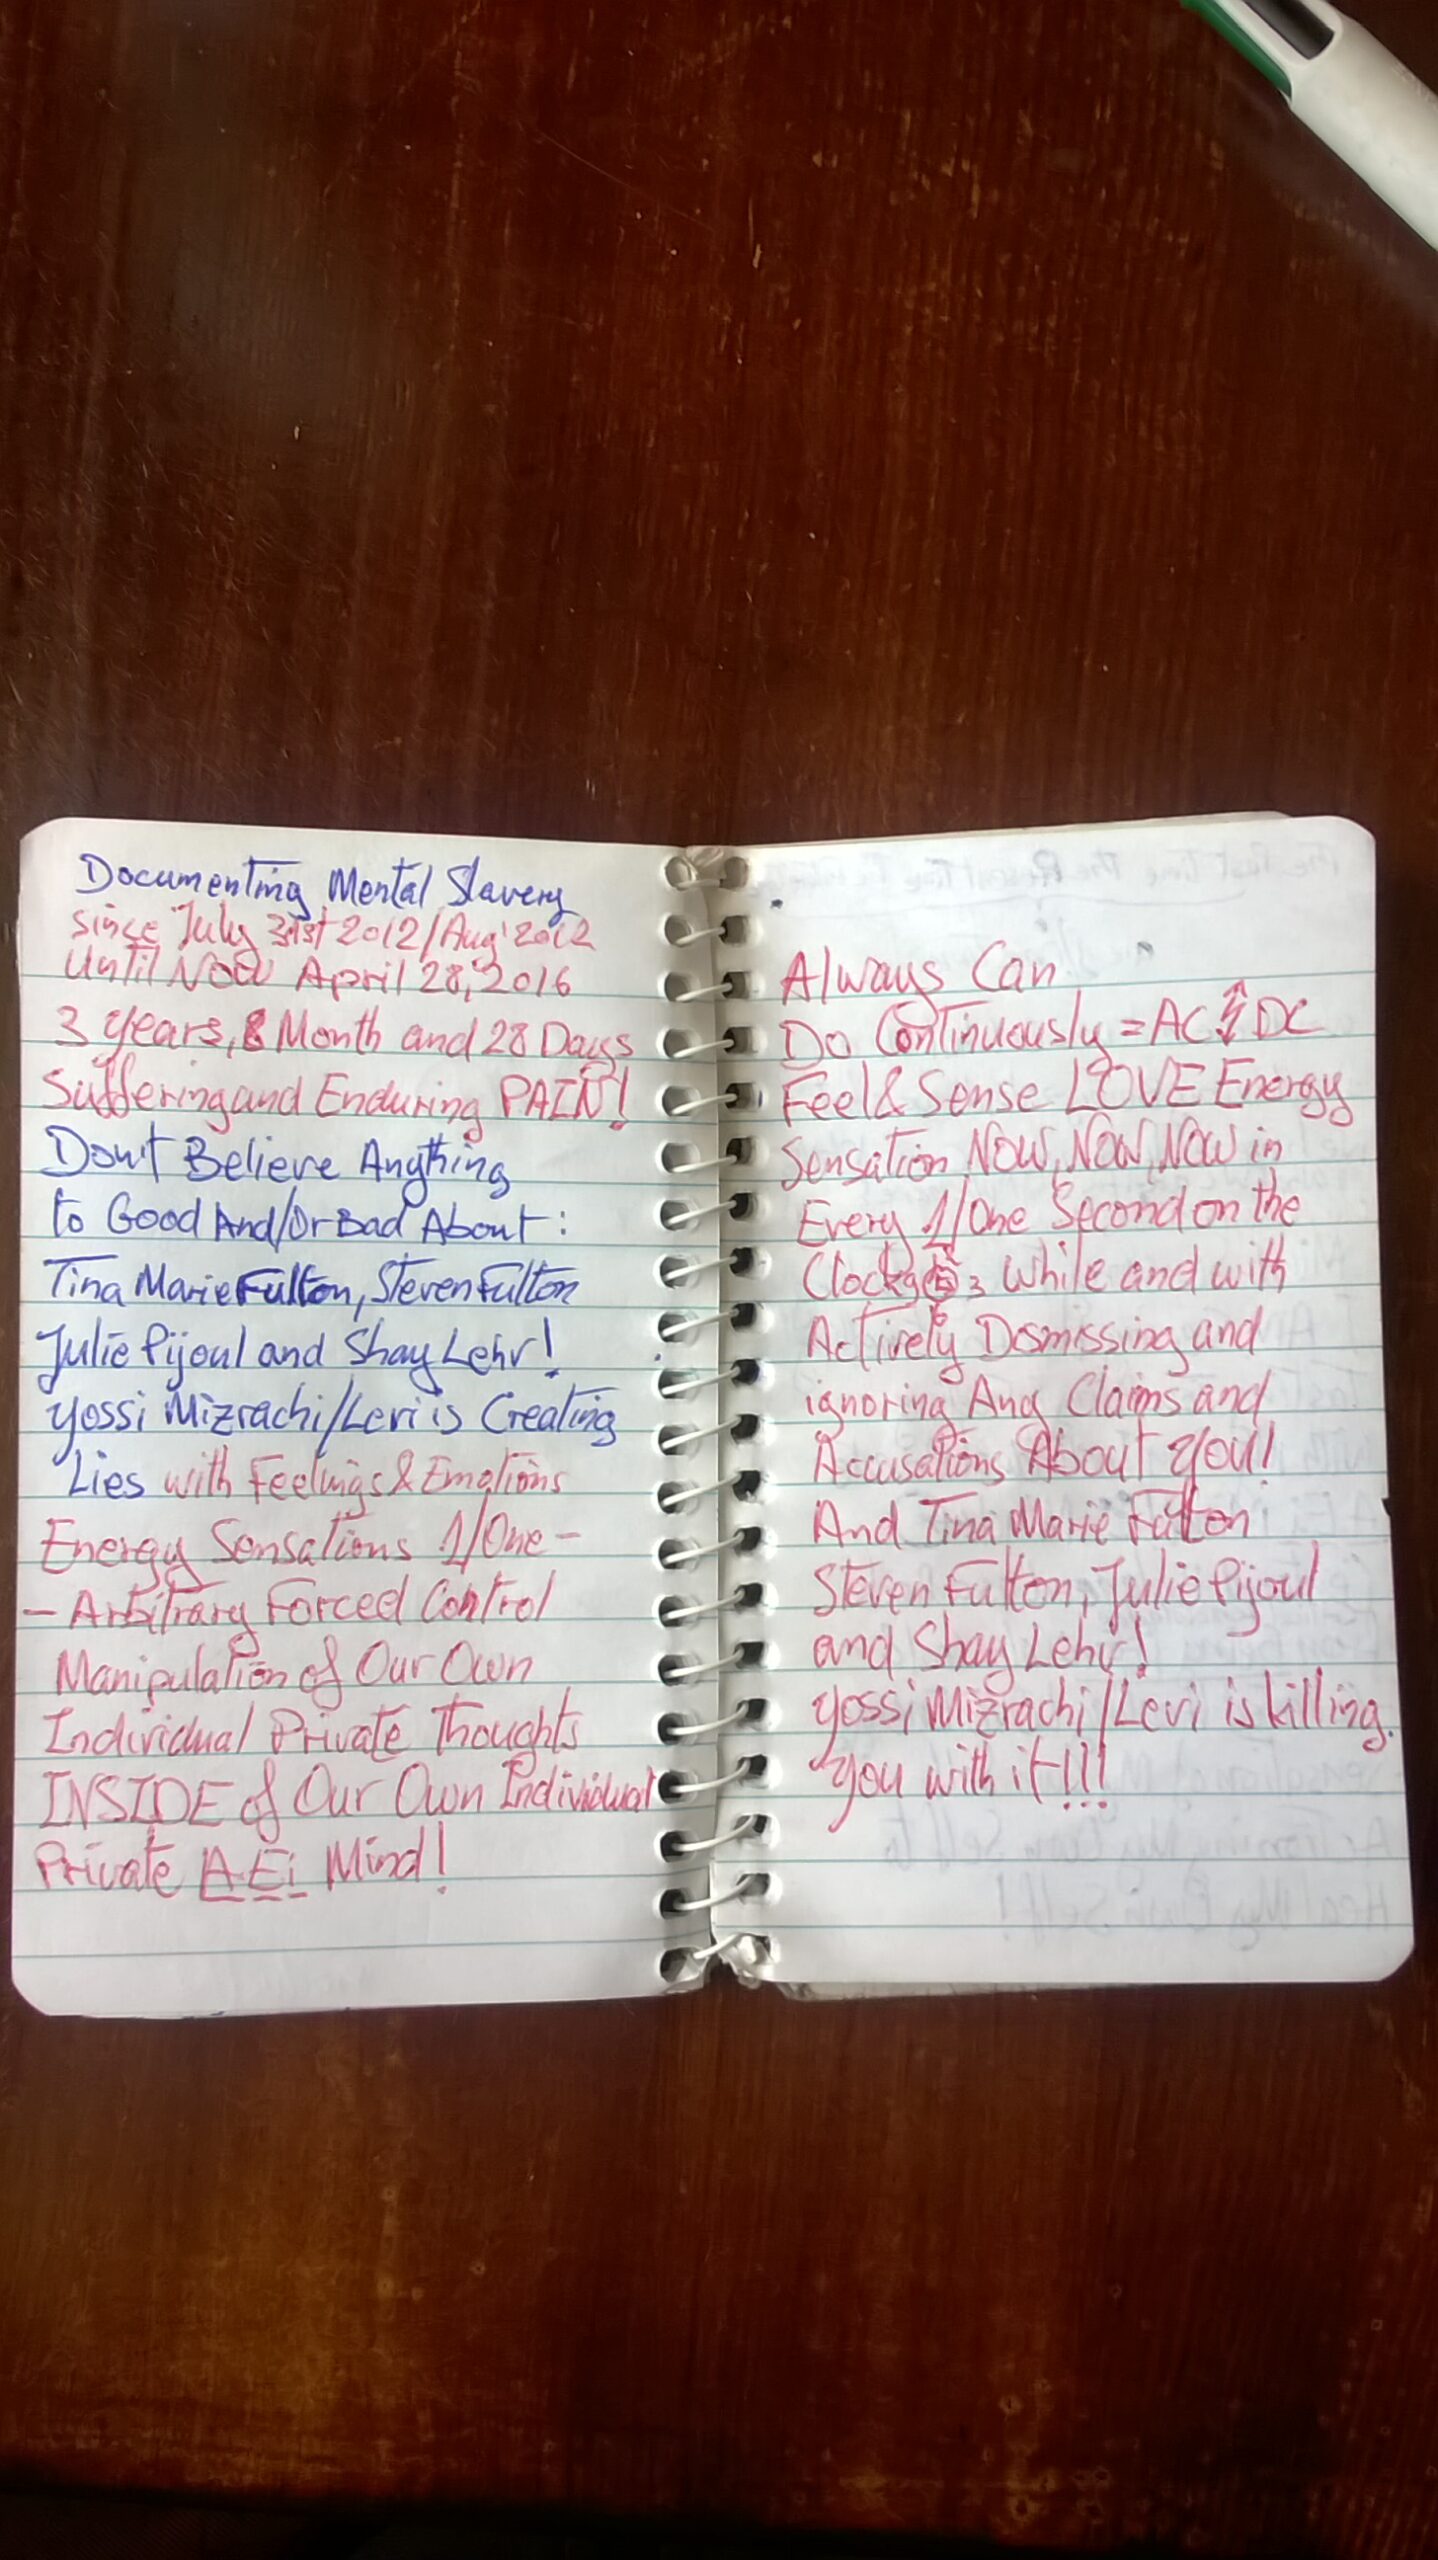 Documenting Mental Slavery
since July 31st 2012/Aug' 2012
Until Now April 28, 2016
3 Years, 8 Month and 28 Days
Suffering and Enduring PAIN!
Don't Believe Anything
to Good And/Or Bad About:
Tina Marie Fulton, Steven Fulton
Julie Pijoul and Shay Lehr!
Yossi Mizrachi/Levi is Creating
Lies with Feelings & Emotions
Energy Sensations 1/One -
- Arbitrary Forced Control
Manipulation of Our Own
Individual Private Thoughts
INSIDE of Our Own Individual
Private A.E.i. Mind!
Always Can
Do Continuously = AC DC
Feel & Sense LOVE Energy
Sensation NOW, NOW, NOW in
Every 1/One Second on the
While and with
Actively Dismissing and
ignoring Any Claims and
Accusations About YOU!
And Tina Marie Fulton
Steven Fulton, Julie Pijoul
and Shay Lehr!
Yossi Mizrachi/Levi is killing
you with it!!!